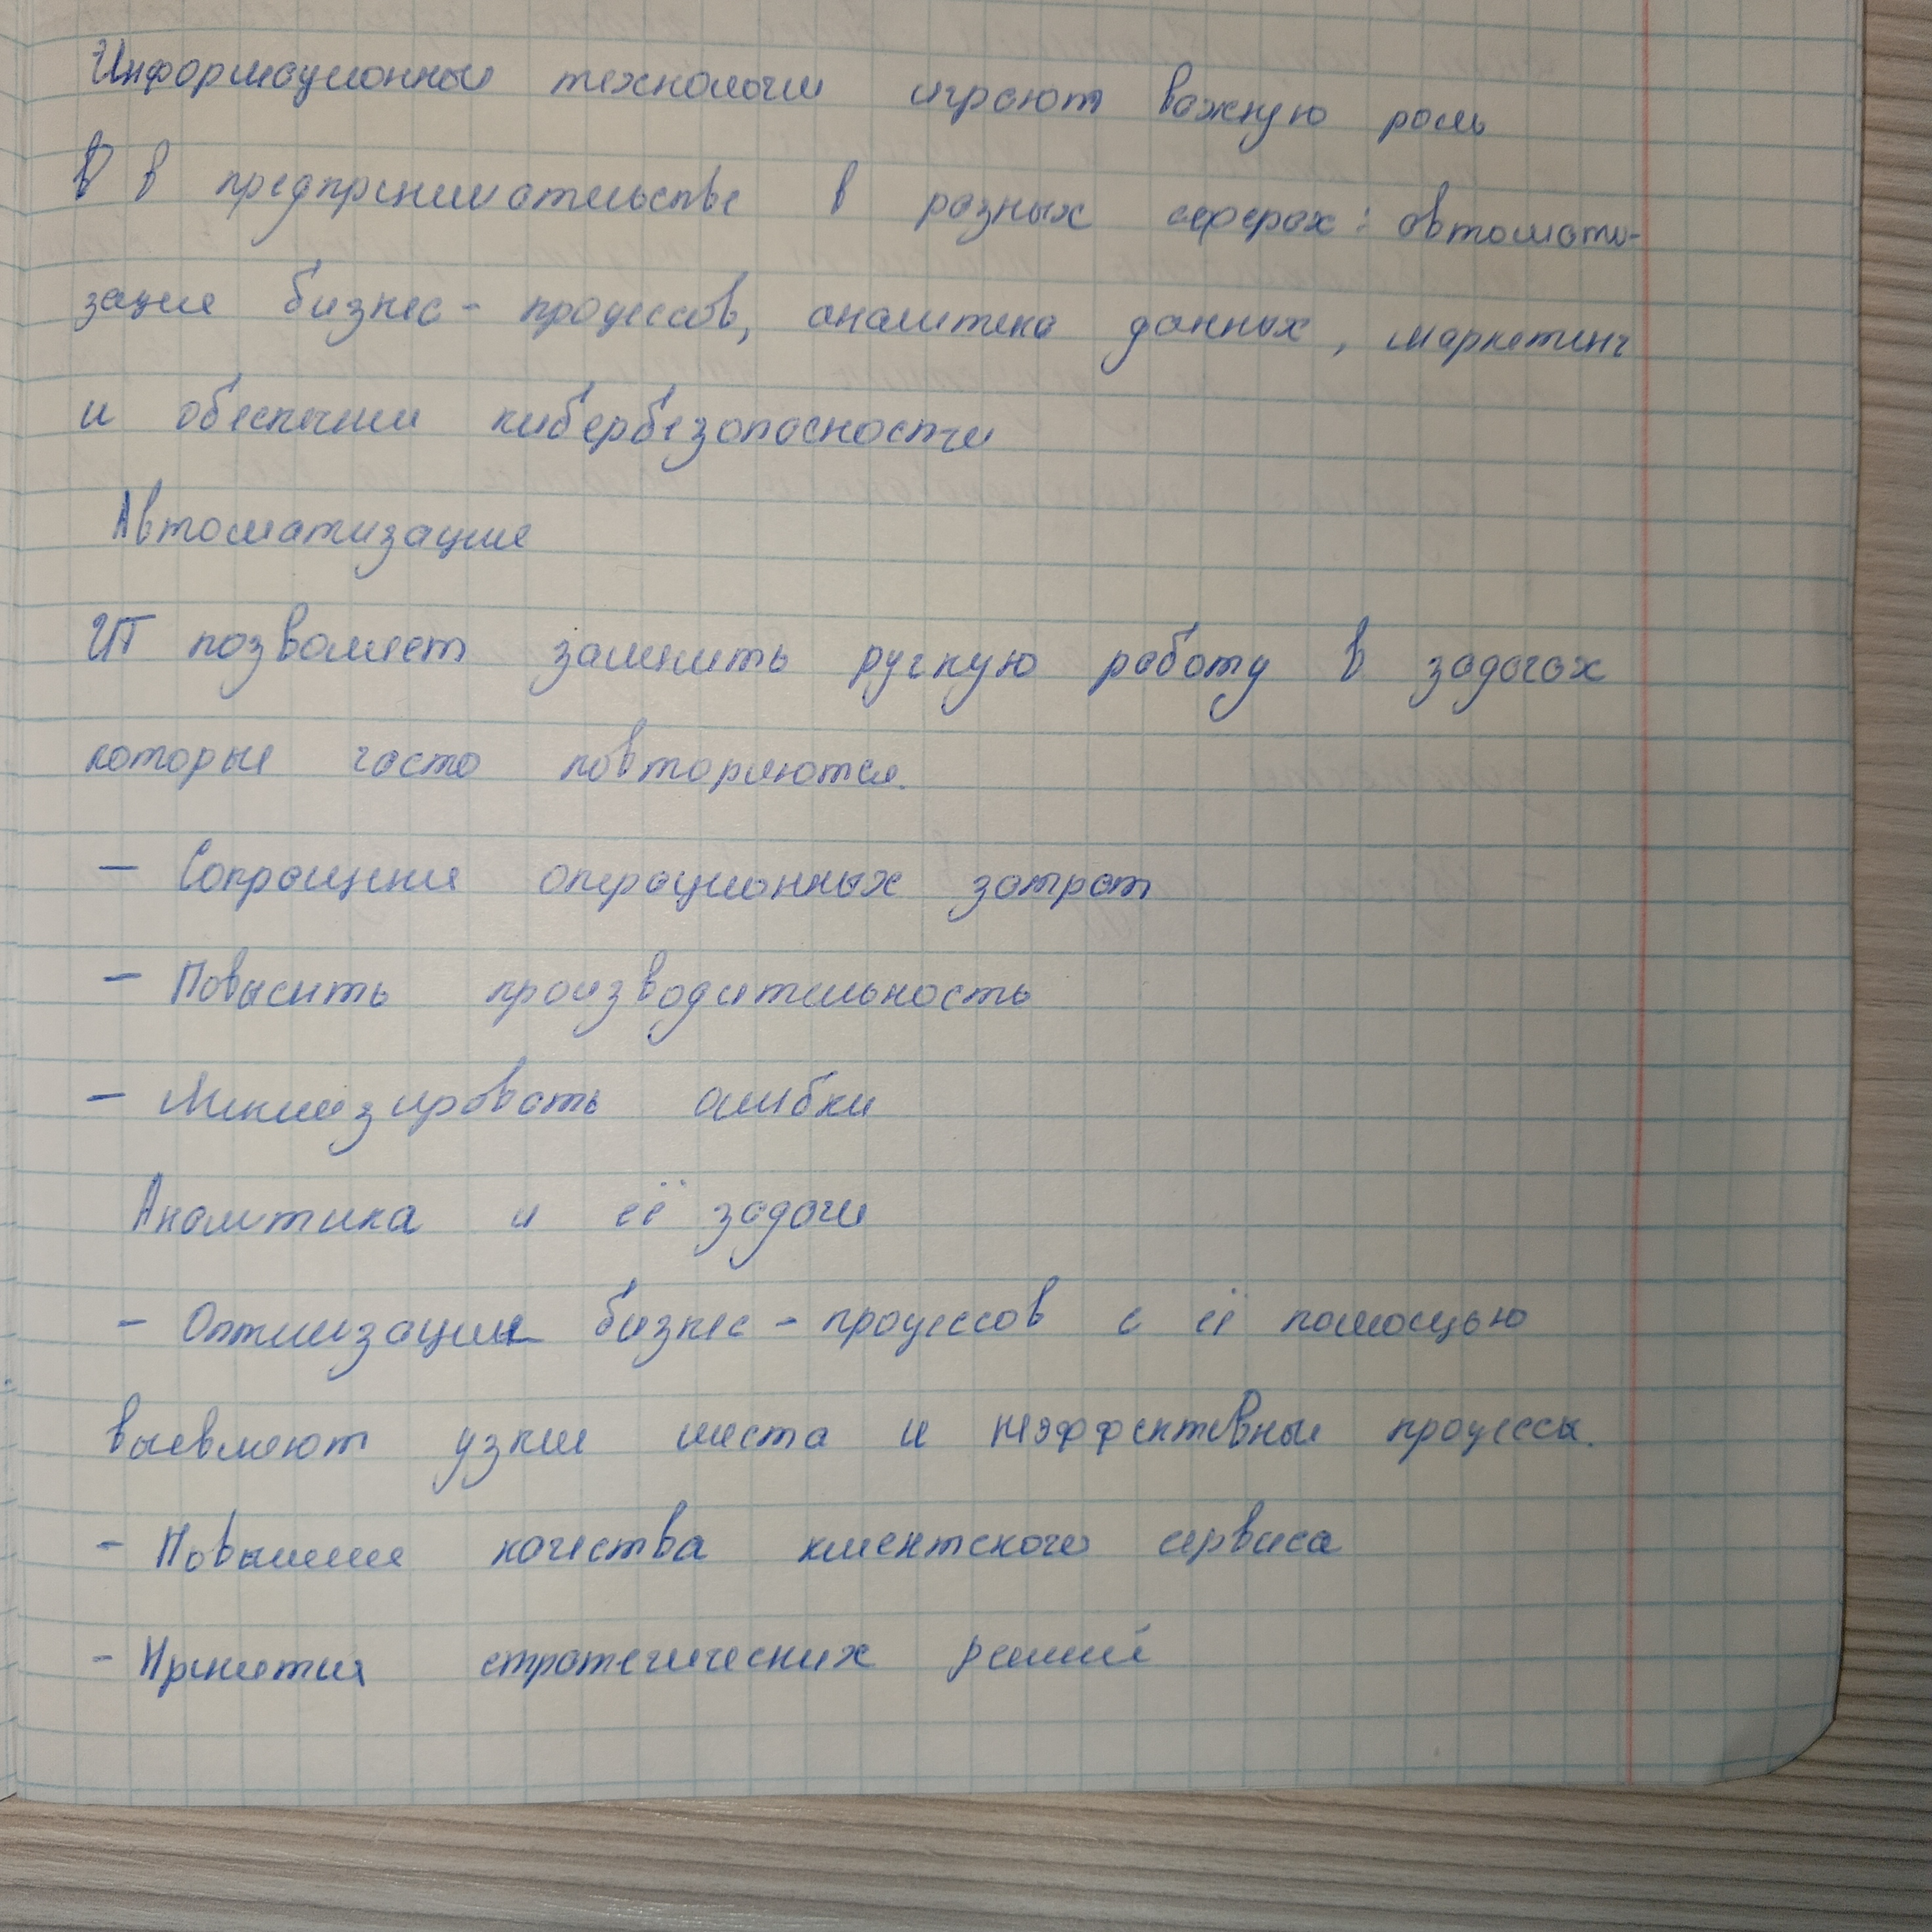 Информационные технологии играют важную роль
В в предпринимательстве в разных сферах: автомати-
зация бизнес-процессов, аналитика данных, маркетинг
и обеспечении кибербезопасности
Автоматизация
ИТ позволяет заменить ручную работу в задачах
которые часто повторяются.
– Сокращения операционных затрат
– Повысить производительность
– Минимизировать ошибки
Аналитика и её задачи
– Оптимизации бизнес-процессов с её помощью
выявляют узкие места и неэффективные процессы.
– Повышение качества клиентского сервиса
– Принятия стратегических решений